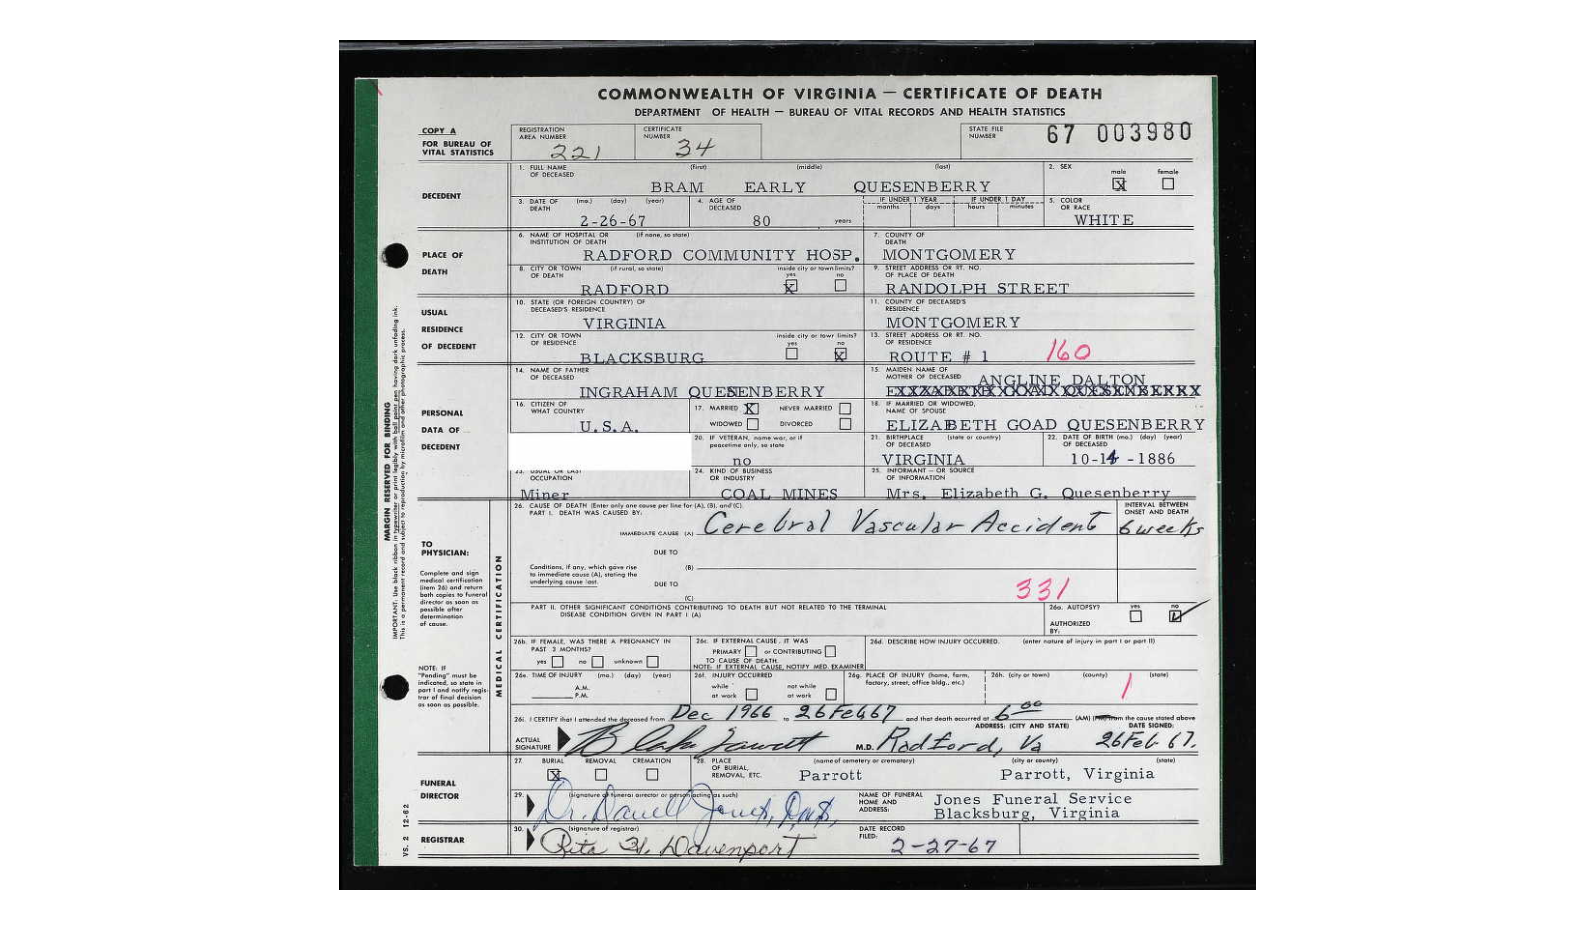 COMMONWEALTH OF VIRGINIA — CERTIFICATE OF DEATH
DEPARTMENT OF HEALTH — BUREAU OF VITAL RECORDS AND HEALTH STATISTICS
COPY A
FOR BUREAU OF
VITAL STATISTICS
REGISTRATION
AREA NUMBER
221
CERTIFICATE
NUMBER
34
STATE FILE
NUMBER
67 003980
DECEDENT
1. FULL NAME (first) (middle) (last)
OF DECEASED
BRAM EARLY QUESENBERRY
2. SEX
male female
X
3. DATE OF (mo.) (day) (year)
DEATH
2-26-67
4. AGE OF
DECEASED
80 years
IF UNDER 1 YEAR IF UNDER 1 DAY
months days hours minutes
5. COLOR
OR RACE
WHITE
PLACE OF
DEATH
6. NAME OF HOSPITAL OR (if none, so state)
INSTITUTION OF DEATH
RADFORD COMMUNITY HOSP.
7. COUNTY OF
DEATH
MONTGOMERY
8. CITY OR TOWN (if rural, so state) inside city or town limits?
OF DEATH yes no
RADFORD X
9. STREET ADDRESS OR RT. NO.
OF PLACE OF DEATH
RANDOLPH STREET
USUAL
RESIDENCE
OF DECEDENT
10. STATE (OR FOREIGN COUNTRY) OF
DECEASED'S RESIDENCE
VIRGINIA
11. COUNTY OF DECEASED'S
RESIDENCE
MONTGOMERY
12. CITY OR TOWN inside city or town limits?
OF RESIDENCE yes no
BLACKSBURG X
13. STREET ADDRESS OR RT. NO.
OF RESIDENCE
ROUTE # 1 160
PERSONAL
DATA OF
DECEDENT
14. NAME OF FATHER
OF DECEASED
INGRAHAM QUESENBERRY
15. MAIDEN NAME OF
MOTHER OF DECEASED ANGLINE DALTON
16. CITIZEN OF
WHAT COUNTRY
U.S.A.
17. MARRIED X NEVER MARRIED
WIDOWED DIVORCED
18. IF MARRIED OR WIDOWED,
NAME OF SPOUSE
ELIZABETH GOAD QUESENBERRY
20. IF VETERAN, name war, or if
peacetime only, so state
no
21. BIRTHPLACE (state or country)
OF DECEASED
VIRGINIA
22. DATE OF BIRTH (mo.) (day) (year)
OF DECEASED
10-14-1886
23. USUAL OR LAST
OCCUPATION
Miner
24. KIND OF BUSINESS
OR INDUSTRY
COAL MINES
25. INFORMANT — OR SOURCE
OF INFORMATION
Mrs. Elizabeth G. Quesenberry
MARGIN RESERVED FOR BINDING
IMPORTANT: Use black ribbon in typewriter or print legibly with ball point pen having dark unfading ink.
This is a permanent record and subject to reproduction by microfilm and other photographic process.
TO
PHYSICIAN:
Complete and sign
medical certification
(item 26) and return
both copies to funeral
director as soon as
possible after
determination
of cause.
NOTE: IF
"Pending" must be
indicated, so state in
part I and notify regis-
trar of final decision
as soon as possible.
MEDICAL CERTIFICATION
26. CAUSE OF DEATH (Enter only one cause per line for (A), (B), and (C).
PART I. DEATH WAS CAUSED BY:
IMMEDIATE CAUSE (A) Cerebral Vascular Accident
INTERVAL BETWEEN
ONSET AND DEATH
6 weeks
DUE TO
Conditions, if any, which gave rise
to immediate cause (A), stating the
underlying cause last.
(B)
DUE TO
(C)
331
PART II. OTHER SIGNIFICANT CONDITIONS CONTRIBUTING TO DEATH BUT NOT RELATED TO THE TERMINAL
DISEASE CONDITION GIVEN IN PART I (A)
26a. AUTOPSY? yes no
AUTHORIZED
BY:
26b. IF FEMALE, WAS THERE A PREGNANCY IN
PAST 3 MONTHS?
yes no unknown
26c. IF EXTERNAL CAUSE, IT WAS
PRIMARY or CONTRIBUTING
TO CAUSE OF DEATH.
NOTE: IF EXTERNAL CAUSE, NOTIFY MED. EXAMINER
26d. DESCRIBE HOW INJURY OCCURRED. (enter nature of injury in part I or part II)
26e. TIME OF INJURY (mo.) (day) (year)
A.M.
P.M.
26f. INJURY OCCURRED
while not while
at work at work
26g. PLACE OF INJURY (home, farm,
factory, street, office bldg., etc.)
26h. (city or town) (county) (state)
1
26i. I CERTIFY that I attended the deceased from Dec 1966 to 26 Feb 67 and that death occurred at 6 00 (AM) from the cause stated above
ADDRESS: (CITY AND STATE) DATE SIGNED:
ACTUAL
SIGNATURE
M.D. Radford, Va 26 Feb 67.
FUNERAL
DIRECTOR
27. BURIAL REMOVAL CREMATION
X
28. PLACE (name of cemetery or crematory) (city or county) (state)
OF BURIAL,
REMOVAL, ETC.
Parrott Parrott, Virginia
29. (signature of funeral director or person acting as such)
NAME OF FUNERAL
HOME AND
ADDRESS:
Jones Funeral Service
Blacksburg, Virginia
REGISTRAR
30. (signature of registrar)
Rita H. Davenport
DATE RECORD
FILED:
2-27-67
VS. 2 12-62